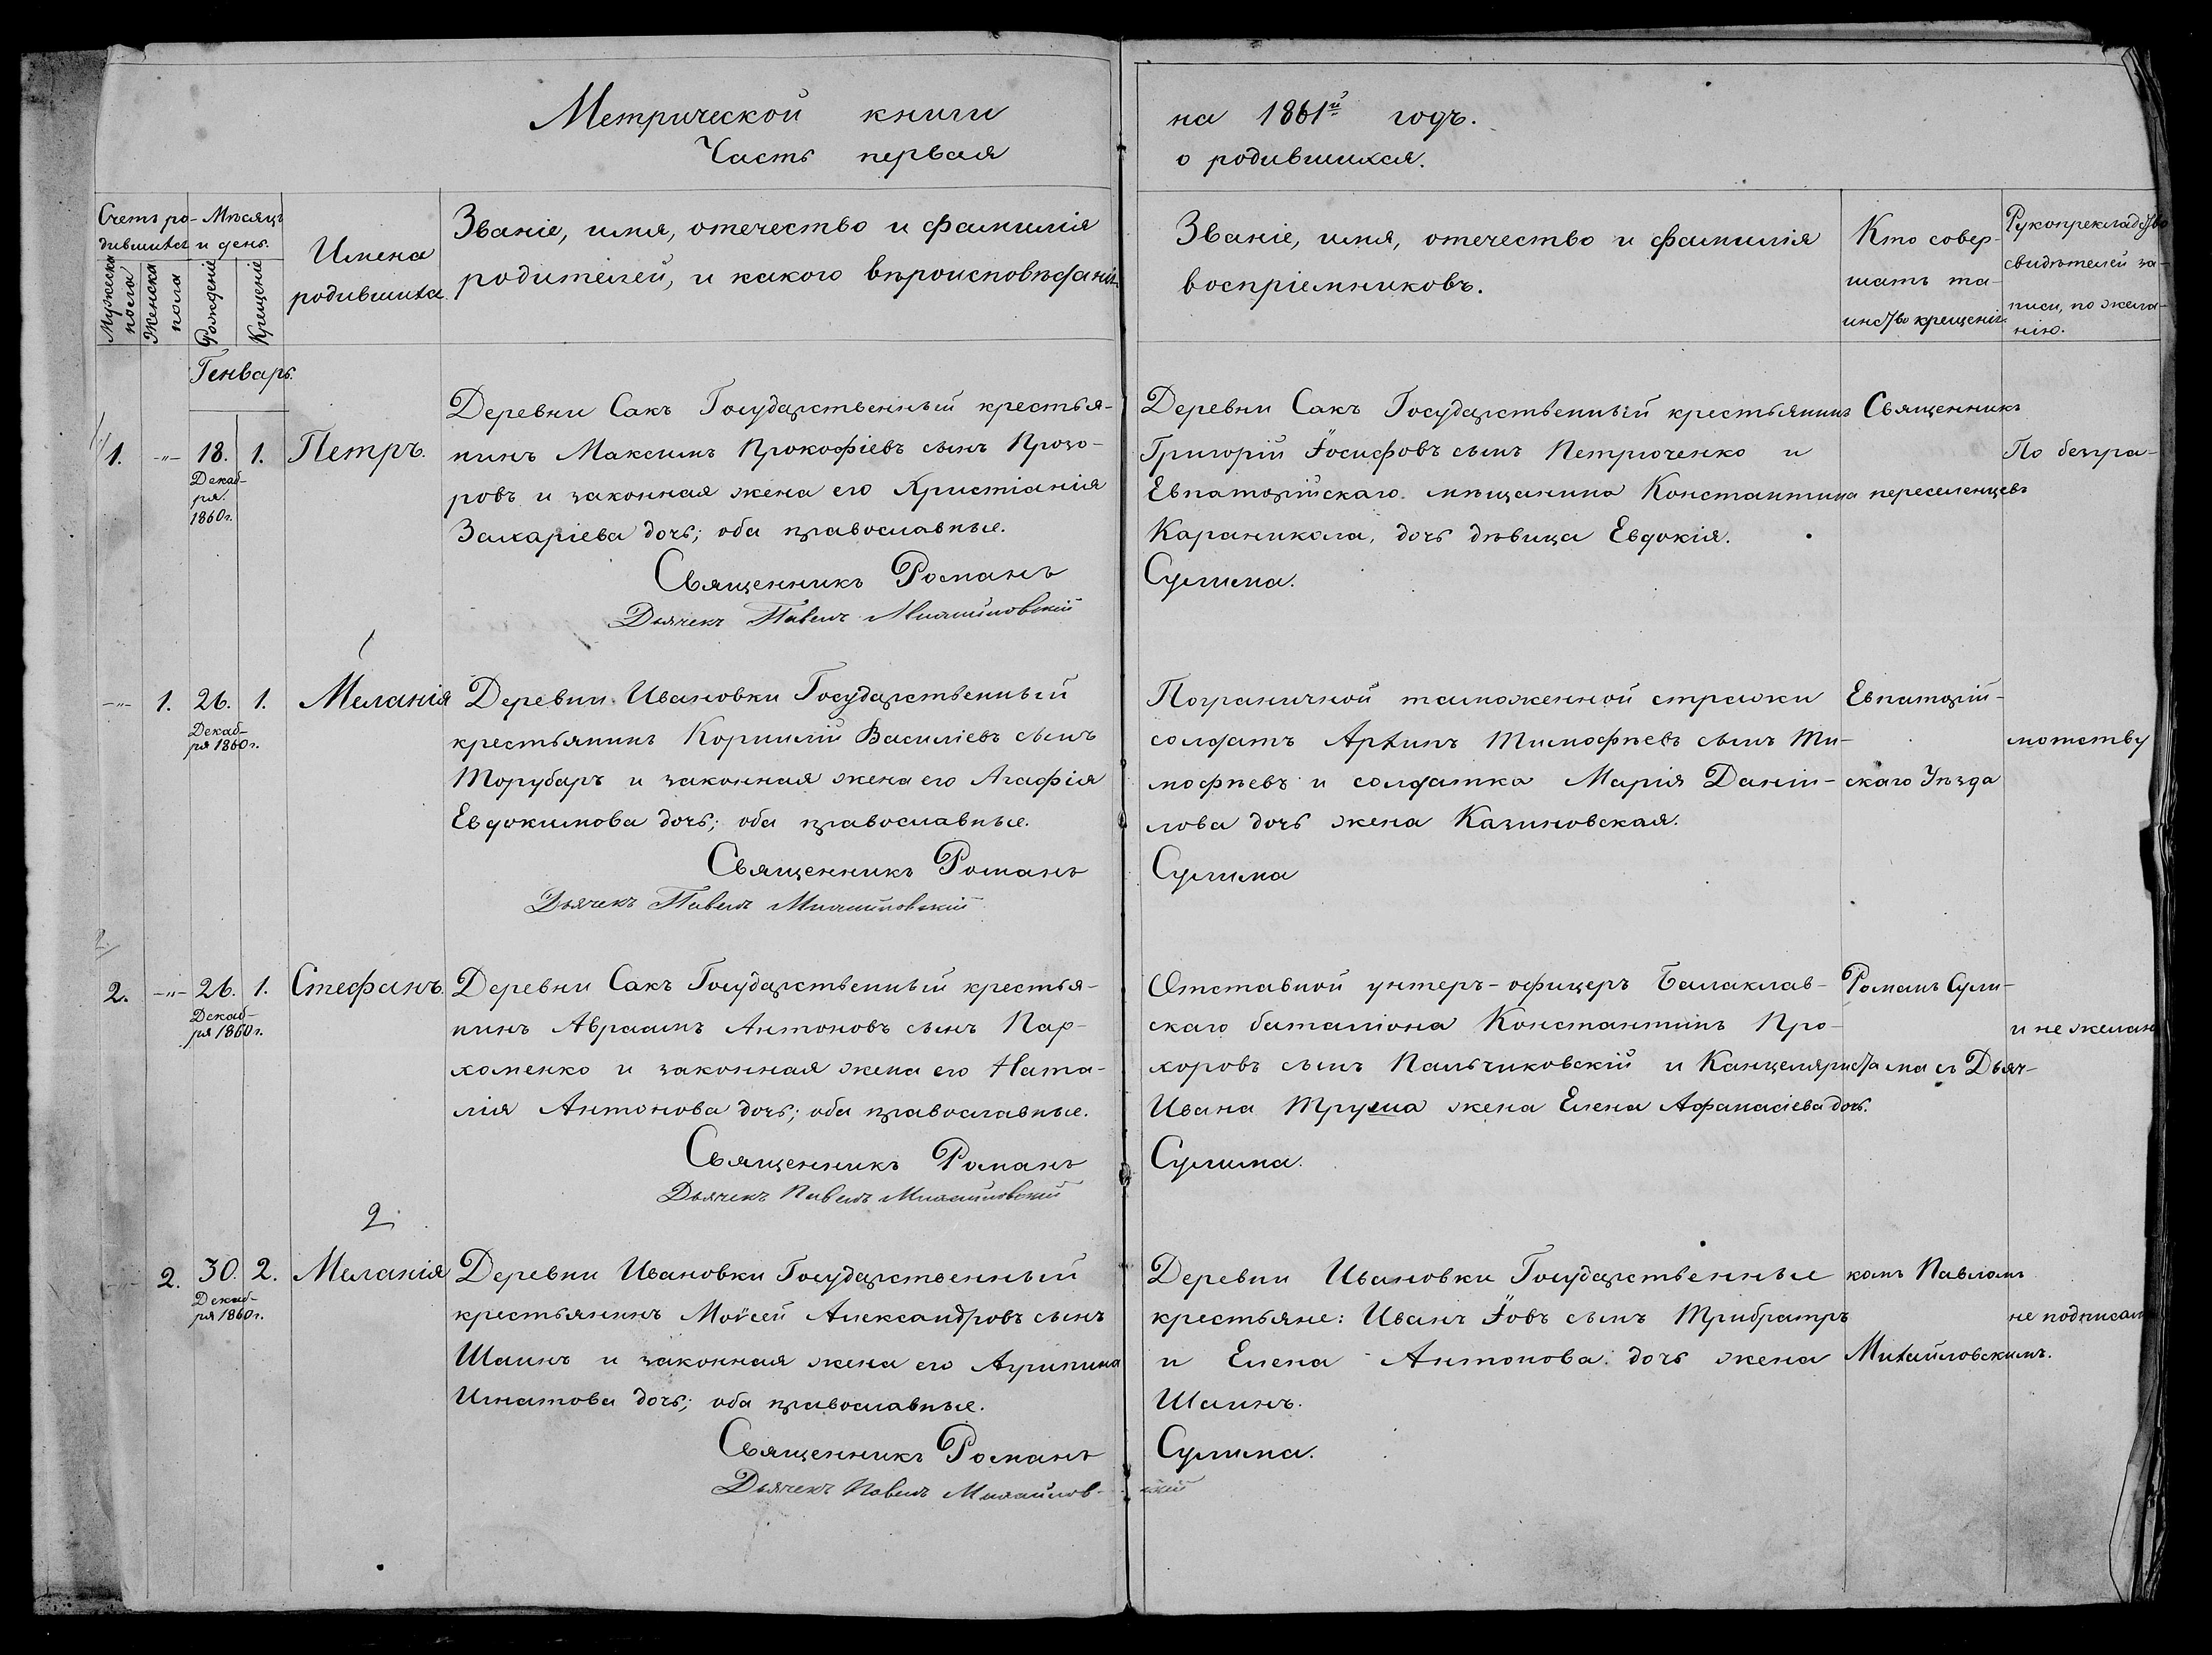 Метрической книги
Часть первая
на 1861й годъ.
о родившихся.
Счетъ ро-
дившихся
Мужеска
пола
Женска
пола
Мѣсяцъ
и день.
Рожденіе
Крещеніе
Имена
родившихся.
Званіе, имя, отечество и фамилія
родителей, и какого вѣроисповѣданія.
Званіе, имя, отечество и фамилія
воспріемниковъ.
Кто совер-
шалъ та-
инство крещенія.
Рукоприкладство
свидѣтелей за-
писи, по жела-
нію.
Генварь.
1. -"- 18. 1. Петръ.
Декаб-
ря
1860 г.
Деревни Сакъ Государственный крестья-
нинъ Максимъ Прокофіевъ сынъ Прозо-
ровъ и законная жена его Христіанія
Захаріева дочь; оба православные.
Священникъ Романъ
Дьячекъ Павелъ Михайловскій
Деревни Сакъ Государственный крестьянинъ
Григорій Іосифовъ сынъ Петрюченко и
Евпаторійскаго мѣщанина Константина
Караникола, дочь дѣвица Евдокія.
Сулима.
Священникъ
переселенцевъ
По безгра-
1
-"- 1. 26. 1. Меланія
Декаб-
ря 1860 г.
Деревни Ивановки Государственный
крестьянинъ Корнилій Василіевъ сынъ
Торубаръ и законная жена его Агафія
Евдокимова дочь; оба православные.
Священникъ Романъ
Дьячекъ Павелъ Михайловскій
Пограничной таможенной стражи
солдатъ Архипъ Тимофѣевъ сынъ Ти-
мофѣевъ и солдатка Марія Даніи-
лова дочь жена Казиновская.
Сулима
Евпаторій-
скаго Уѣзда
мотству
2.
2. -"- 26. 1. Стефанъ.
Декаб-
ря 1860 г.
Деревни Сакъ Государственный крестья-
нинъ Авраамъ Антоновъ сынъ Пар-
хоменко и законная жена его Ната-
лія Антонова дочь; оба православные.
Священникъ Романъ
Дьячекъ Павелъ Михайловскій
Отставной унтеръ-офицеръ Балаклав-
скаго баталіона Константинъ Про-
хоровъ сынъ Пальчиковскій и Канцеляриста
Ивана Труша жена Елена Афанасіева дочь.
Сулима.
Романъ Сули-
ма съ Дьяч-
и не желан
2
-"- 2. 30. 2. Меланія
Декаб-
ря 1860 г.
Деревни Ивановки Государственный
крестьянинъ Моѵсей Александровъ сынъ
Шаинъ и законная жена его Агрипина
Игнатова дочь; оба православные.
Священникъ Романъ
Дьячекъ Павелъ Михайлов-
скій
Деревни Ивановки Государственные
крестьяне: Иванъ Іовъ сынъ Трибратръ
и Елена Антонова дочь жена
Шаинъ.
Сулима.
комъ Павломъ
Михайловскимъ.
не подписал